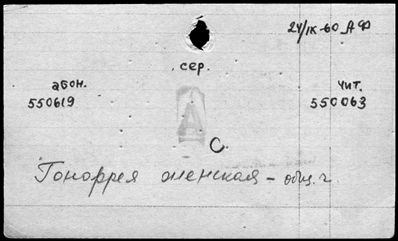 24/IX-60 АФ
сер.
абон. чит.
550619 550063
А
С.
Гонорея женская - общ. г.